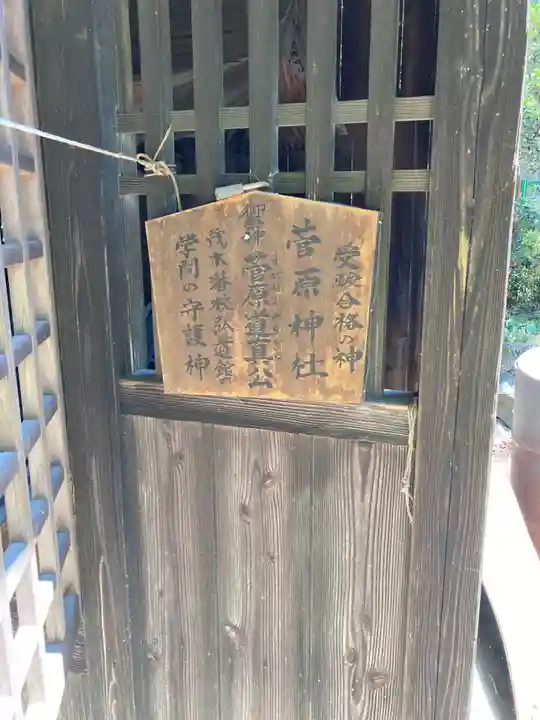 受験合格の神
菅原神社
御祭神 菅原道真公
茂木藩校弘道館
学問の守護神